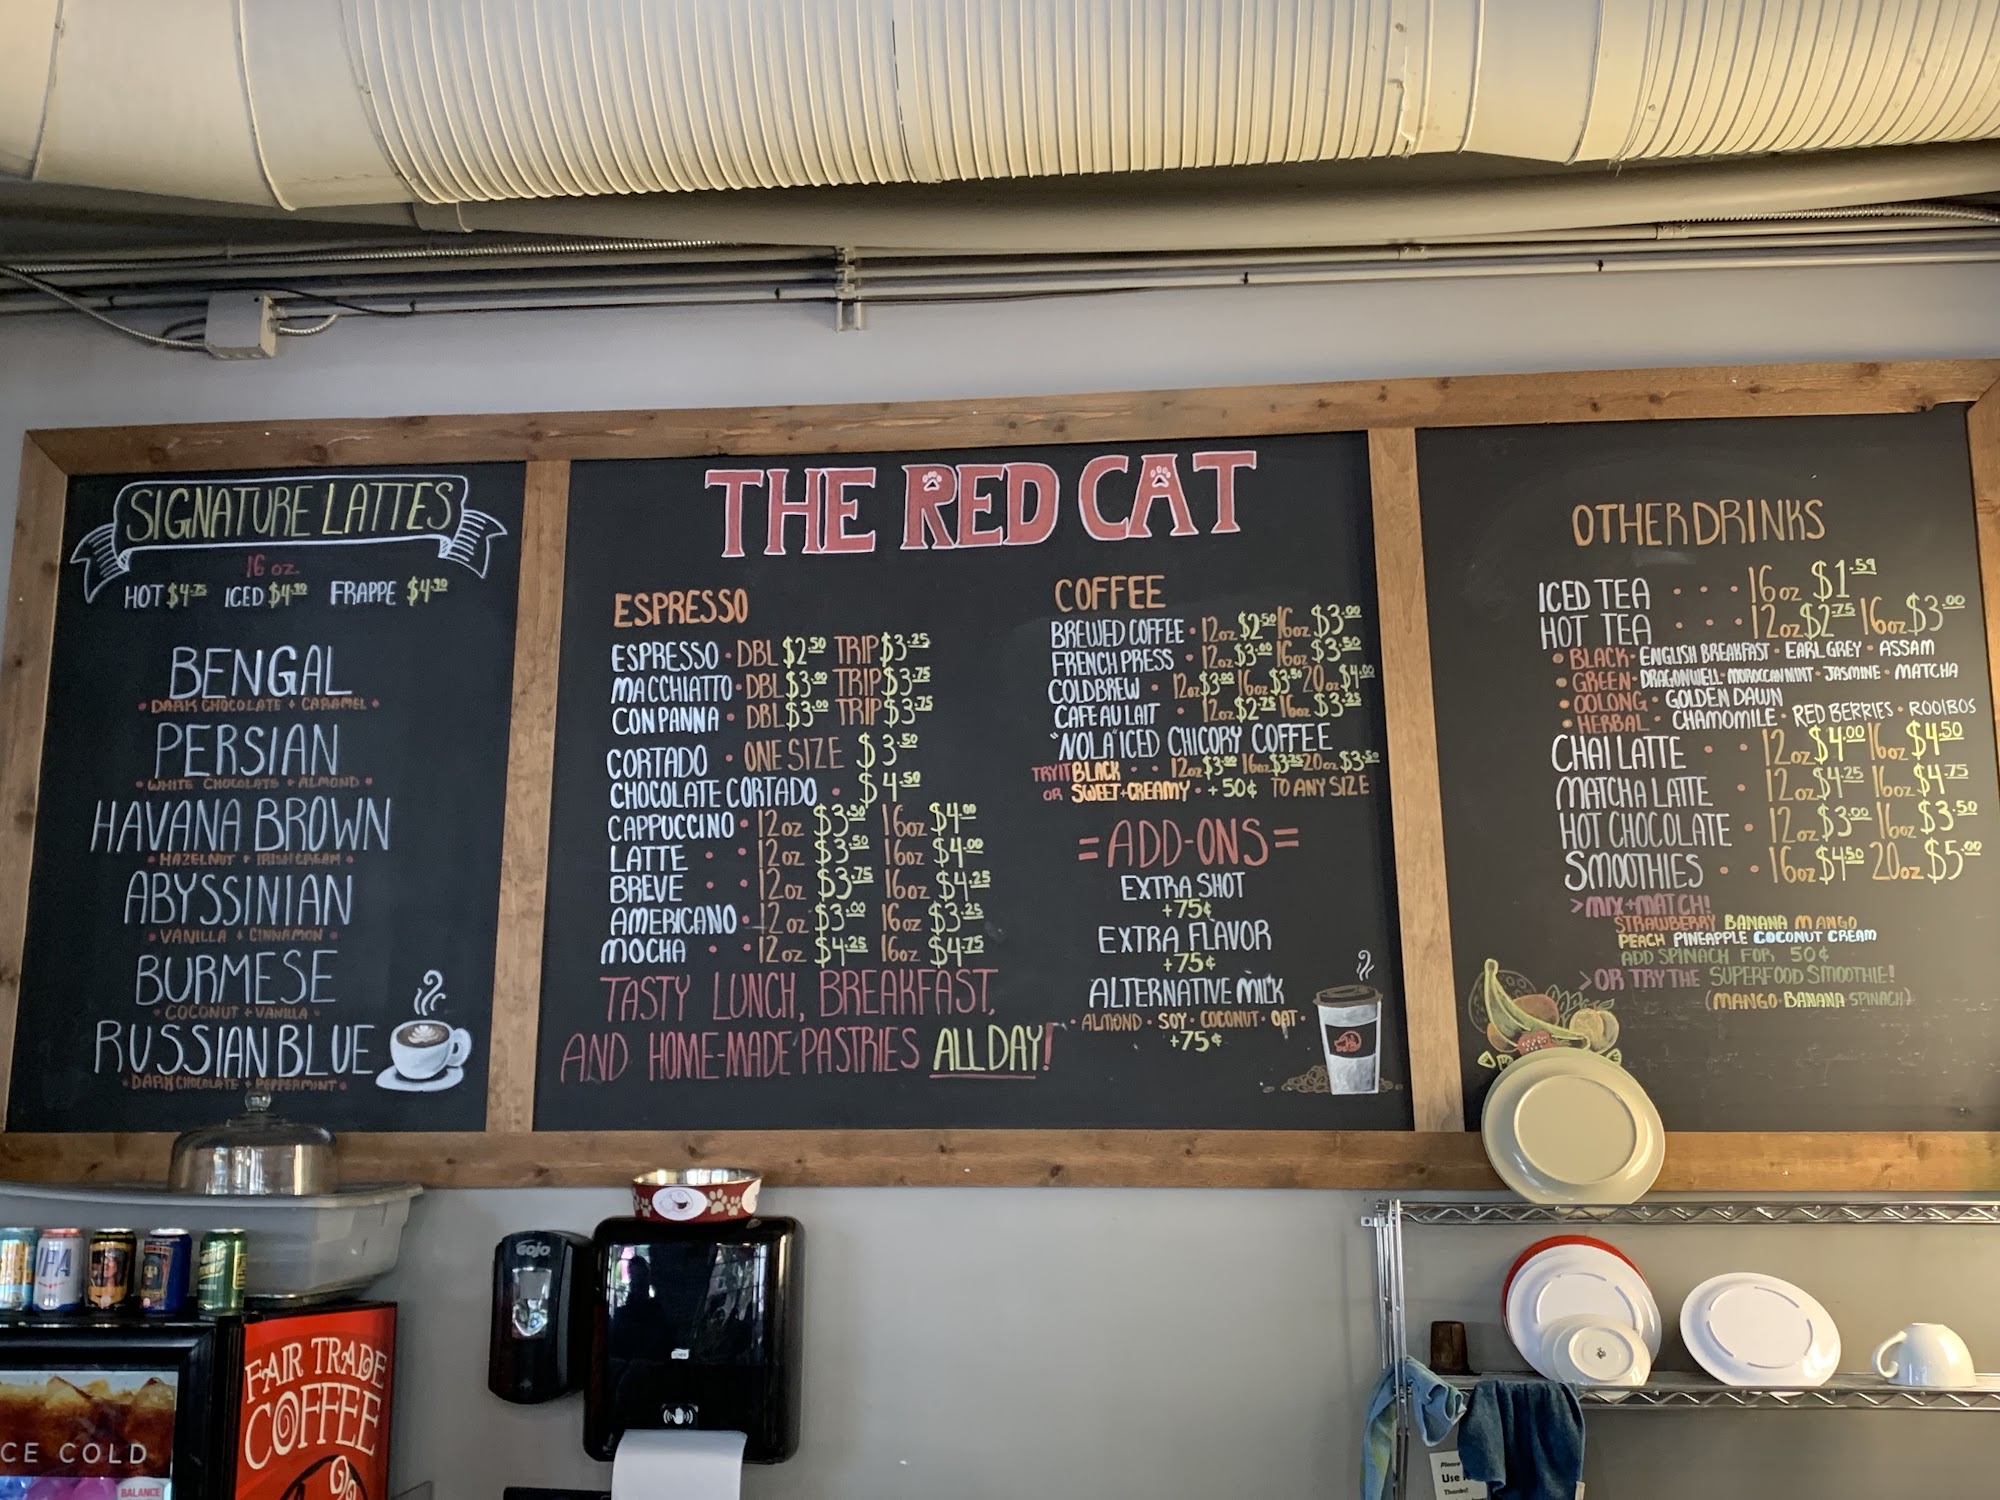 SIGNATURE LATTES
16 oz
HOT $4.75 ICED $4.90 FRAPPE $4.90
BENGAL
• DARK CHOCOLATE + CARAMEL •
PERSIAN
• WHITE CHOCOLATE + ALMOND •
HAVANA BROWN
• HAZELNUT + IRISH CREAM •
ABYSSINIAN
• VANILLA + CINNAMON •
BURMESE
• COCONUT + VANILLA •
RUSSIAN BLUE
• DARK CHOCOLATE + PEPPERMINT •
THE RED CAT
ESPRESSO
ESPRESSO • DBL $2.50 TRIP $3.25
MACCHIATTO • DBL $3.00 TRIP $3.75
CON PANNA • DBL $3.00 TRIP $3.75
CORTADO • ONE SIZE $3.50
CHOCOLATE CORTADO • $4.50
CAPPUCCINO • 12oz $3.50 16oz $4.00
LATTE • • 12oz $3.50 16oz $4.00
BREVE • • 12oz $3.75 16oz $4.25
AMERICANO • 12oz $3.00 16oz $3.25
MOCHA • • 12oz $4.25 16oz $4.75
TASTY LUNCH, BREAKFAST,
AND HOME-MADE PASTRIES ALL DAY!
COFFEE
BREWED COFFEE • 12oz $2.50 16oz $3.00
FRENCH PRESS • 12oz $3.00 16oz $3.50
COLDBREW • 12oz $3.00 16oz $3.50 20oz $4.00
CAFE AU LAIT • 12oz $2.75 16oz $3.25
"NOLA" ICED CHICORY COFFEE
TRY IT BLACK • • 12oz $3.00 16oz $3.25 20oz $3.50
OR SWEET+CREAMY • +50¢ TO ANY SIZE
=ADD-ONS=
EXTRA SHOT
+75¢
EXTRA FLAVOR
+75¢
ALTERNATIVE MILK
• ALMOND • SOY • COCONUT • OAT •
+75¢
OTHER DRINKS
ICED TEA • • • 16oz $1.59
HOT TEA • • • 12oz $2.75 16oz $3.00
• BLACK • ENGLISH BREAKFAST • EARL GREY • ASSAM
• GREEN • DRAGONWELL • MOROCCAN MINT • JASMINE • MATCHA
• OOLONG • GOLDEN DAWN
• HERBAL • CHAMOMILE • RED BERRIES • ROOIBOS
CHAI LATTE • • 12oz $4.00 16oz $4.50
MATCHA LATTE • 12oz $4.25 16oz $4.75
HOT CHOCOLATE • 12oz $3.00 16oz $3.50
SMOOTHIES • • 16oz $4.50 20oz $5.00
>MIX+MATCH!
STRAWBERRY BANANA MANGO
PEACH PINEAPPLE COCONUT CREAM
ADD SPINACH FOR 50¢
>OR TRY THE SUPERFOOD SMOOTHIE!
(MANGO BANANA SPINACH)
GOJO
IPA
FAIR TRADE
COFFEE
CE COLD
BALANCE
Please
Use
Thanks!